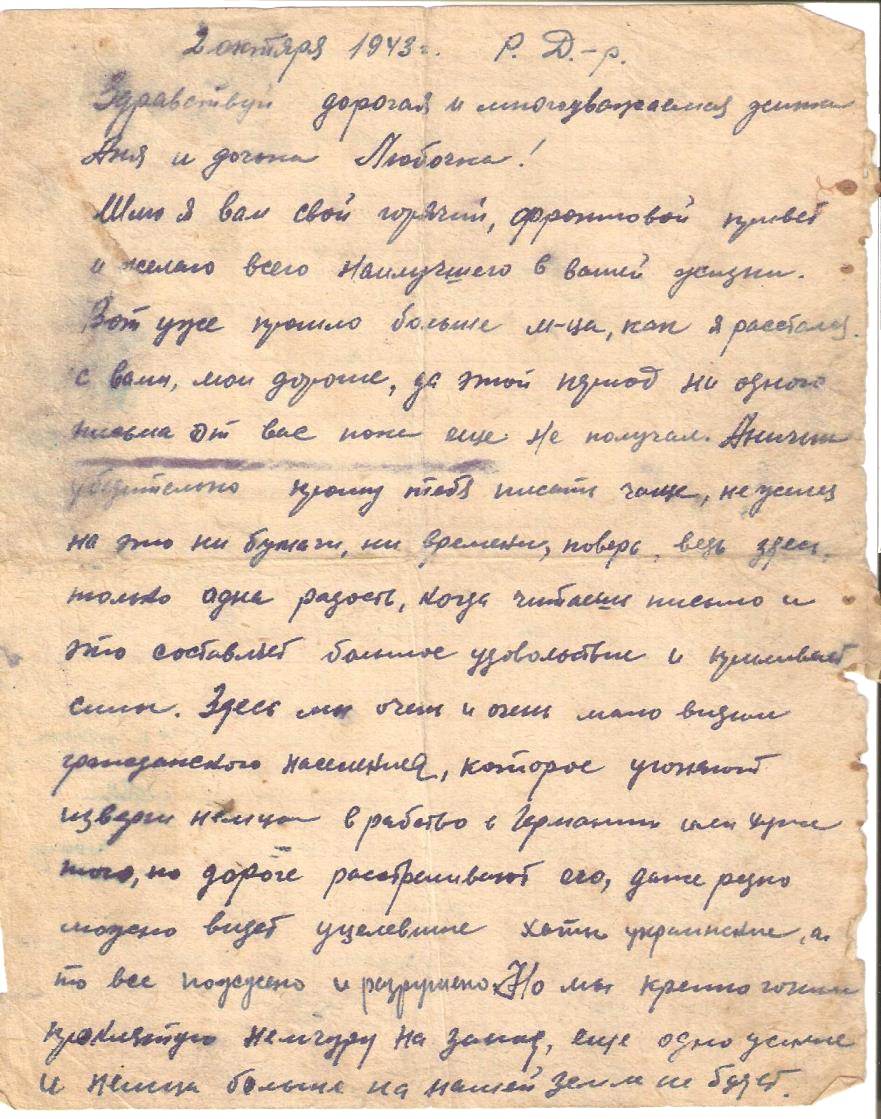 2 октября 1943 г. Р. Д.-р.
Здравствуй дорогая и многоуважаемая жинка
Аня и дочька Любочка!
Шлю я вам свой горячий, фронтовой привет
и желаю всего наилучшего в вашей жизни.
Вот уже прошло больше м-ца, как я расстался
с вами, мои дороге, да этой период ни одного
письма от вас пока еще не получал. Аничка
убедительно прошу тебя писать чаще, не жалей
на это ни бумаги, ни времени, поверь, ведь здесь
только одна радость, когда читаеш письмо и
это составляет большое удовольствие и приливает
силы. Здесь мы очень и очень мало видим
гражданского населения, которое угоняют
изверги немцы в рабство в Германию или хуже
того, по дороге расстреливают его, даже редко
можно видет уцелевшие хаты украинские, а
то все пожжено и разрушено. Но мы крепко гоним
проклятую немчуру на запад, еще одно усилие
и немца больше на нашей земле не будет.